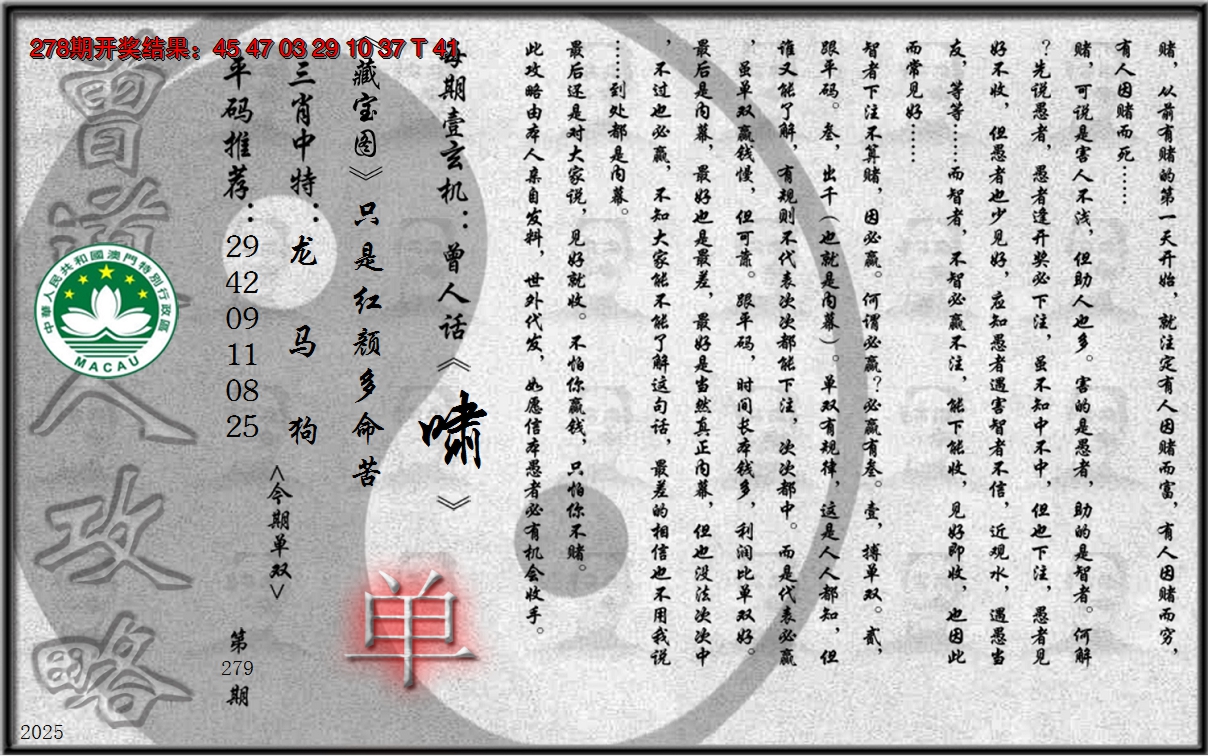 278期开奖结果：45 47 03 29 10 37 T 41
赌，从前有赌的第一天开始，就注定有人因赌而富，有人因赌而穷，
有人因赌而死……
赌，可说是害人不浅，但助人也多。害的是愚者，助的是智者。何解
？先说愚者，愚者逢开奖必下注，虽不知中不中，但也下注，愚者见
好不收，但愚者也少见好，应知愚者遇害智者不信，近观水，遇愚当
友，等等……而智者，不智必赢不注，能下能收，见好即收，也因此
而常见好……
智者下注不算赌，因必赢。何谓必赢？必赢有叁。壹，搏单双。贰，
跟平码。叁，出千（也就是内幕）。单双有规律，这是人人都知，但
谁又能了解，有规则不代表次次都能下注，次次都中。而是代表必赢
，虽单双赢钱慢，但可靠。跟平码，时间长本钱多，利润比单双好。
最后是内幕，最好也是最差，最好是当然真正内幕，但也没法次次中
，不过也必赢，不知大家能不能了解这句话，最差的相信也不用我说
……到处都是内幕。
最后还是对大家说，见好就收。不怕你赢钱，只怕你不赌。
此攻略由本人亲自发料，世外代发，如愿信本愚者必有机会收手。
每期壹玄机：曾人话《啸》
《藏宝图》只是红颜多命苦
单
三肖中特：龙 马 狗
<今期单双>
平码推荐：29 42 09 11 08 25
第279期
曾道人攻略
中華人民共和國澳門特別行政區
MACAU
2025